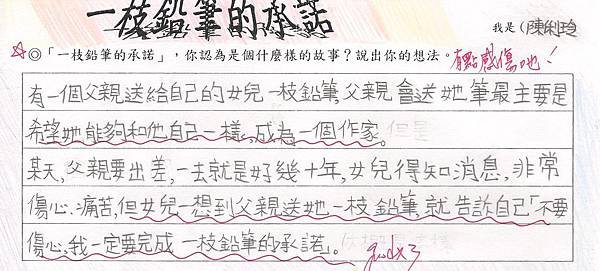 一枝鉛筆的承諾
我是(陳俐玲
☆◎「一枝鉛筆的承諾」，你認為是個什麼樣的故事？說出你的想法。有點感傷呦！
有一個父親送給自己的女兒一枝鉛筆,父親會送她筆最主要是
希望她能夠和他自己一樣,成為一個作家。但是
某天,父親要出差,一去就是好幾十年,女兒得知消息,非常
傷心、痛苦,但女兒一想到父親送她一枝鉛筆,就告訴自己「不要
傷心,我一定要完成一枝鉛筆的承諾」。